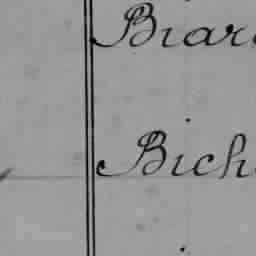 Biar
Bich